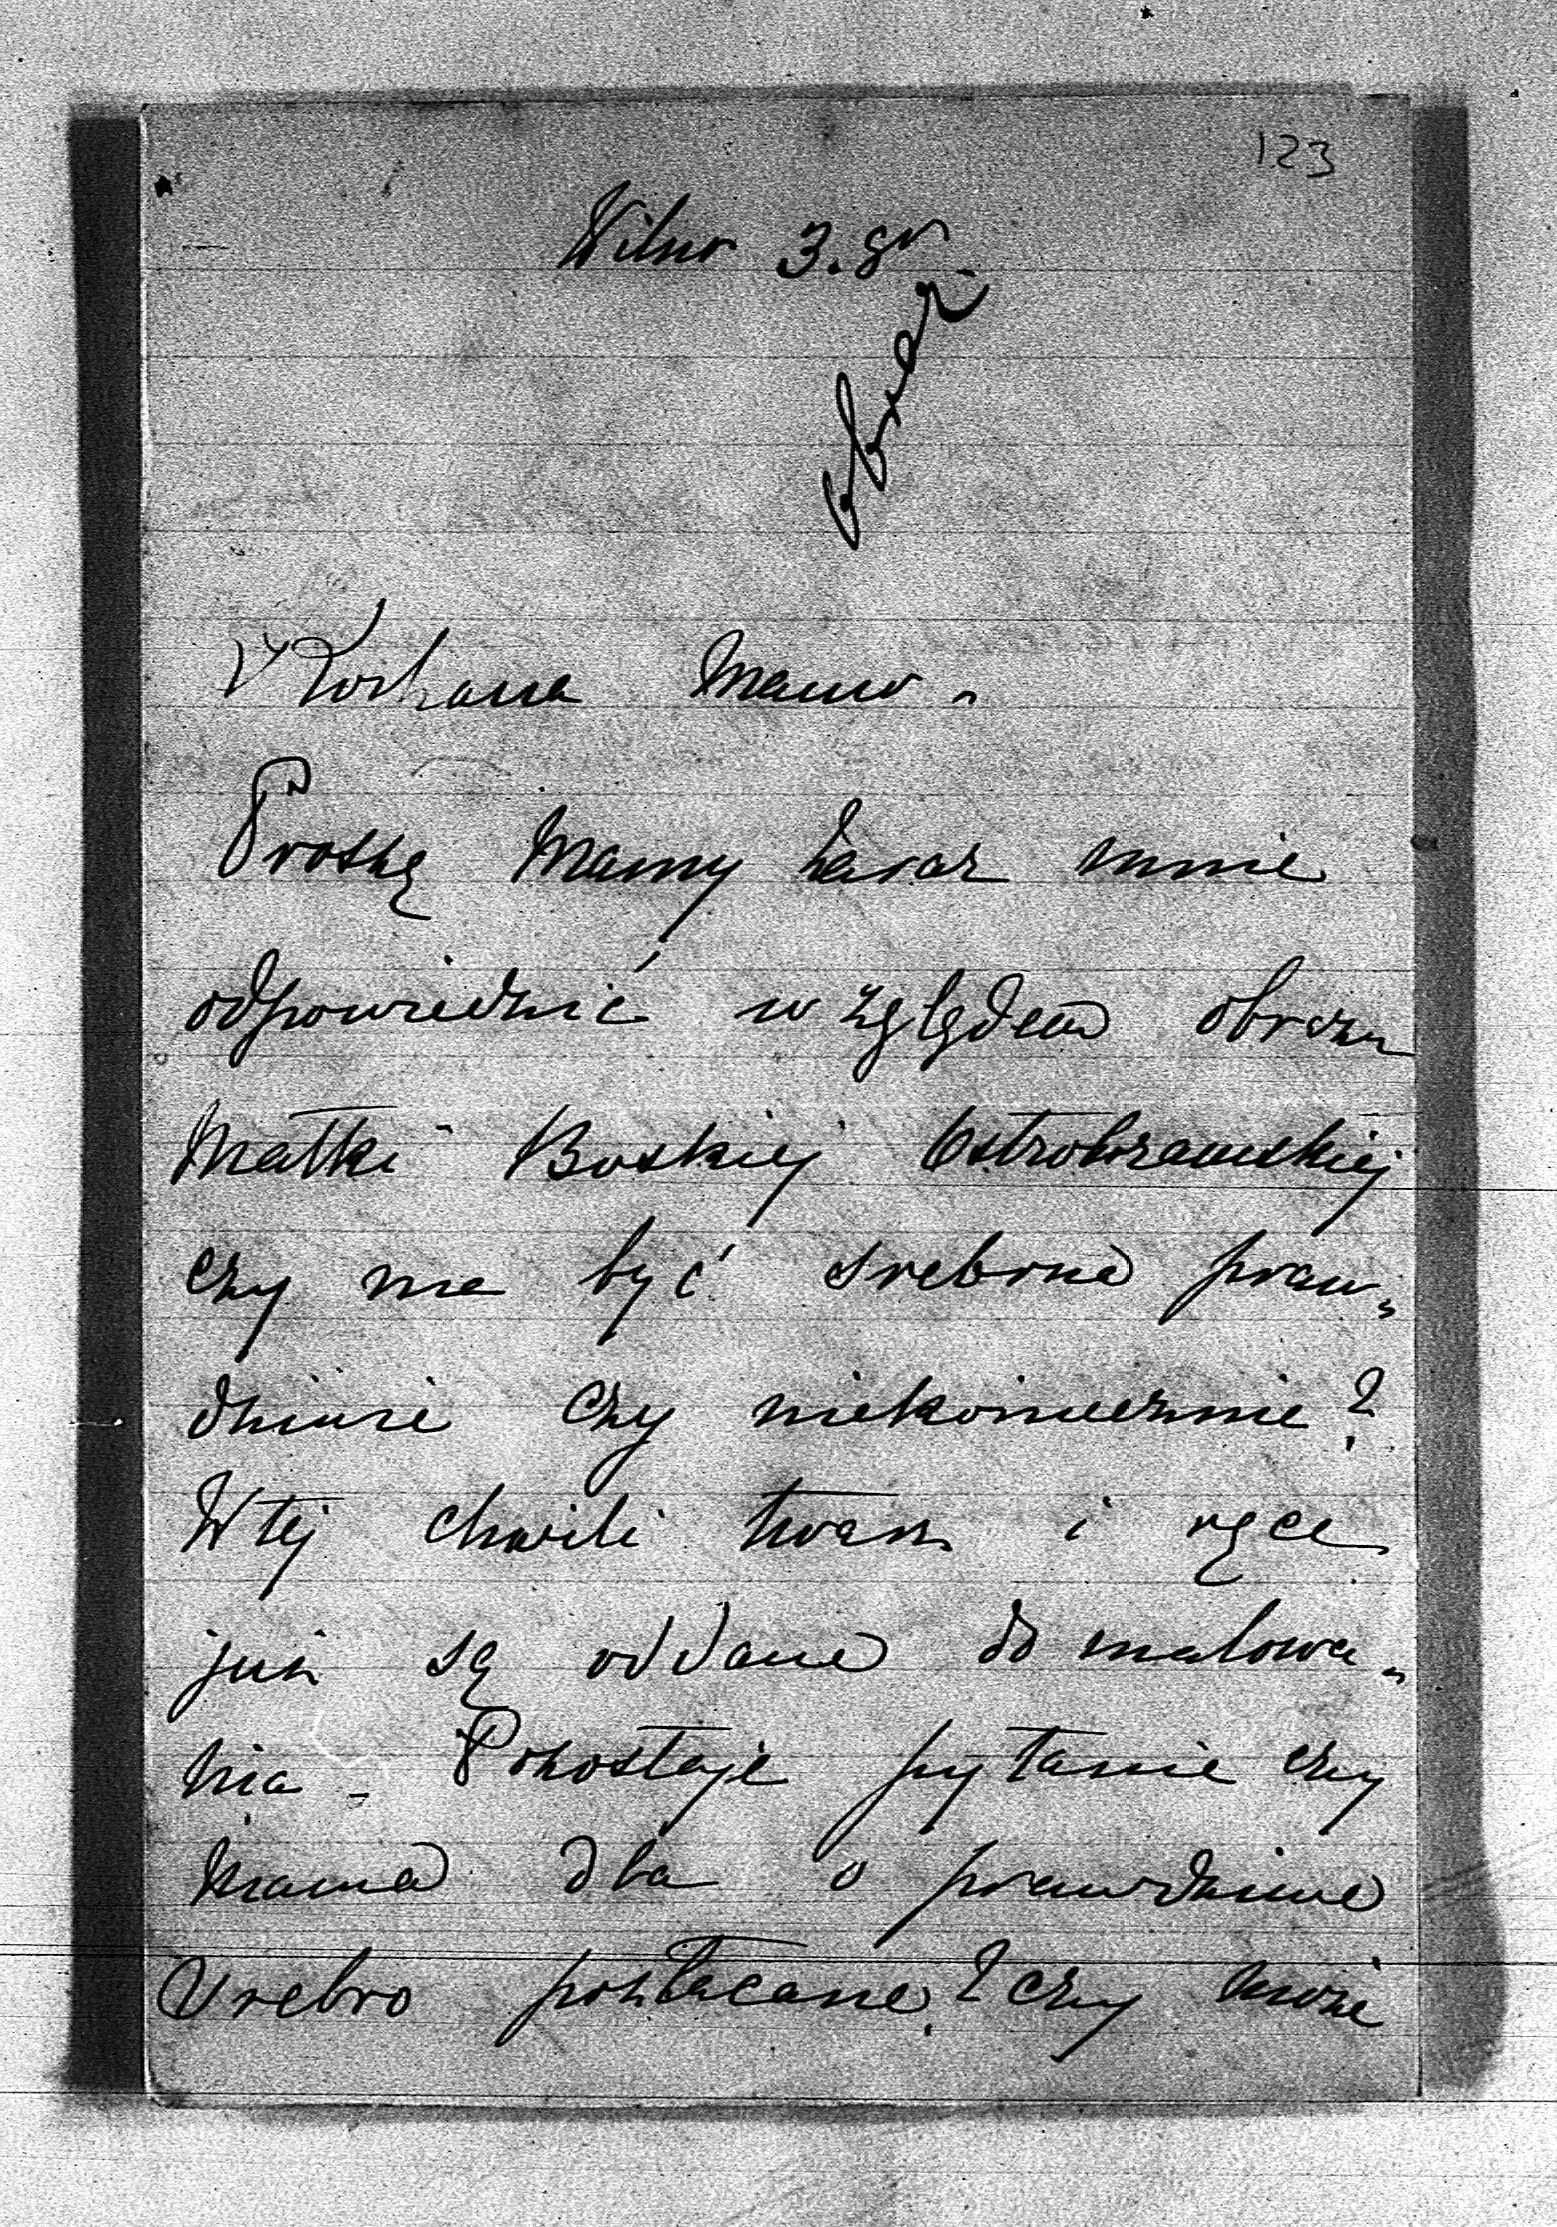 123
Wilno 3. gr.
Kochana Mamo.
Proszę Mamy zaraz mnie
odpowiedzieć względem obrazu
Matki Boskiej Ostrobramskiej
czy ma być srebrna praw„
dziwie czy niekoniecznie?
W tej chwili twarz i ręce
już są oddane do malowa„
nia - Pozostaje pytanie czy
Mama dba o prawdziwe
Srebro pozłacane? czy może